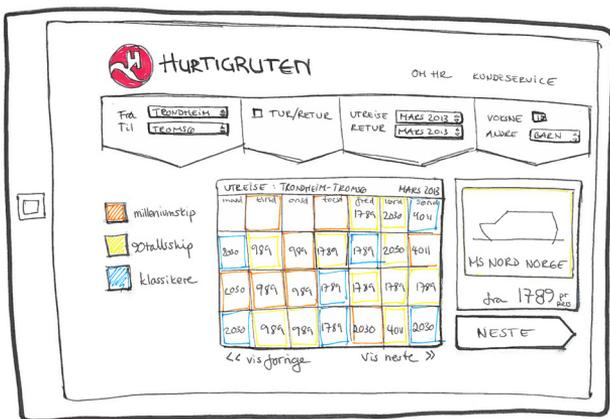 HURTIGRUTEN
OM HR KUNDESERVICE
Fra TRONDHEIM
Til TROMSØ
TUR/RETUR
UTREISE MARS 2013
RETUR MARS 2013
VOKSNE
ANDRE BARN
milleniumskip
90tallsskip
klassikere
UTREISE: TRONDHEIM-TROMSØ MARS 2013
mand tirsd onsd torsd fred lørd sønd
1789 2030 4011
989 989 1789 1789 2050 4011
2050 989 989 1789 1789 1789 1789
2050 989 989 1789 2030 4011 2030
<< vis forrige Vis neste >>
MS NORD NORGE
fra 1789 pr
NESTE